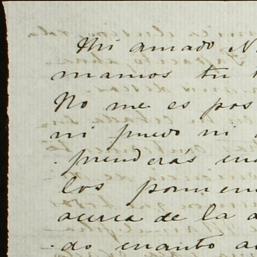 Mi amado
mamos tu
No me es pos
ni puedo ni
prenderás
los pormen
acerca de la a
do cuanto a